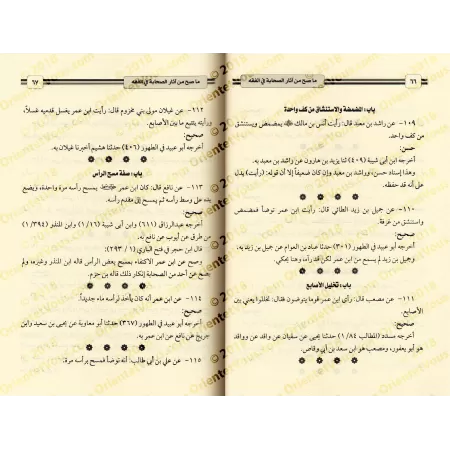 ٦٦
ما صح من آثار الصحابة في الفقه
باب: المضمضة والاستنشاق من كف واحدة
١٠٩- عن راشد بن معبد قال: رأيت أنس بن مالك يمضمض ويستنشق
من كف واحد.
حسن:
أخرجه ابن أبي شيبة (٤٠٩) ثنا يزيد بن هارون عن راشد بن معبد به.
وهذا إسناد حسن، وراشد بن معبد وإن كان ضعيفاً إلا أن قوله: (رأيت) يدل
على أنه قد حفظه.
١١٠- عن جميل بن زيد الطائي قال: رأيت ابن عمر توضأ فمضمض
واستنشق من غرفة.
صحيح:
أخرجه أبو عبيد في الطهور (٣٠١) حدثنا عباد بن العوام عن جميل بن زيد به.
وجميل بن زيد لم يسمع من ابن عمر لكن قد رآه، وهنا يحكي.
باب: تخليل الأصابع
١١١- عن مصعب قال: رأى ابن عمر قوما يتوضون فقال: تخللوا يعني بين
الأصابع.
صحيح:
أخرجه مسدد (المطالب ١/٨٤) حدثنا يحيى عن سفيان عن واقد عن
هو أبو يعفور، ومصعب هو ابن سعد بن أبي وقاص.
ما صح من آثار الصحابة في الفقه
٦٧
١١٢- عن غيلان مولى بني مخزوم قال: رأيت ابن عمر يغسل قدميه غسلاً،
ورأيته يتتبع ما بين الأصابع.
صحيح:
أخرجه أبو عبيد في الطهور (٤٠٦) حدثنا هشيم أخبرنا غيلان به.
باب: صفة مسح الرأس
١١٣- عن نافع قال: كان ابن عمر يمسح رأسه مرة واحدة، ويضع
يده على وسط رأسه ثم يمسح إلى مقدم رأسه.
صحيح:
أخرجه عبدالرزاق (٦١١) وابن أبي شيبة (١/١٦) وابن المنذر (١/٣٩٤)
من طرق عن أيوب عن نافع به.
قال ابن حجر في فتح الباري (١/٢٩٣):
وصح عن ابن عمر الاكتفاء بمسح بعض الرأس قاله ابن المنذر وغيره، ولم
يصح عن أحد من الصحابة إنكار ذلك قاله بن حزم.
١١٤- عن ابن عمر أنه كان يأخذ لرأسه ماء جديداً.
صحيح:
أخرجه أبو عبيد في الطهور (٣٦٧) حدثنا أبو معاوية عن يحيى بن سعيد وابن
جريج عن نافع عن ابن عمر به.
١١٥- عن علي بن أبي طالب: أنه توضأ فمسح برأسه مرة.